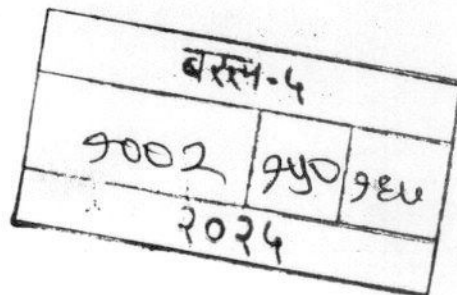 बरल-५
१००२ १५० १६५
२०२५